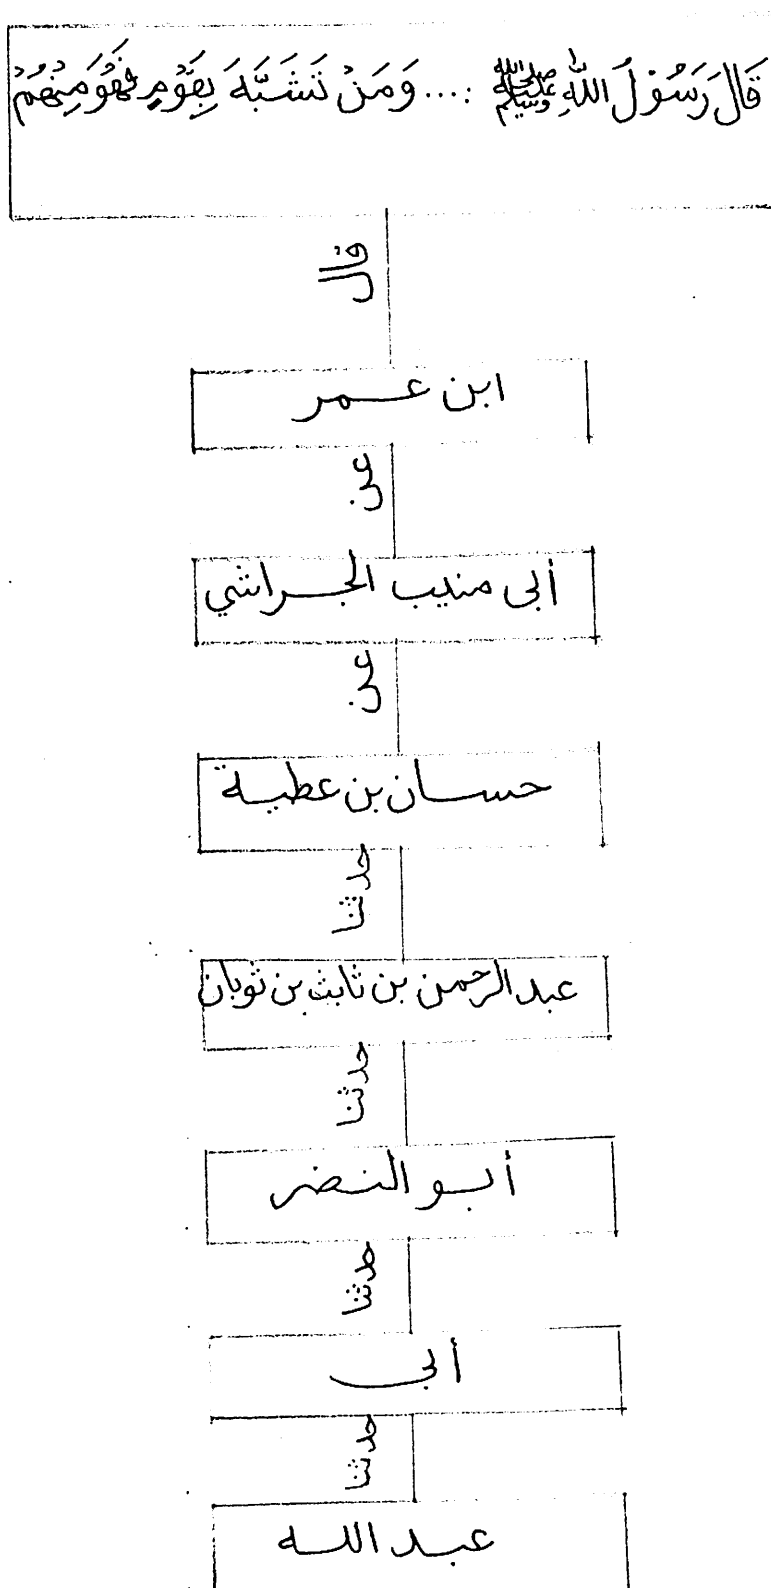 قَالَ رَسُوْلَ اللّٰهِ ﷺ :... وَمَنْ تَشَبَّهَ بِقَوْمٍ فَهُوَ مِنْهُمْ
قال
ابن عمر
عن
أبى منيب الجراشي
عن
حسان بن عطية
حدثنا
عبد الرحمن بن ثابث بن ثوبان
حدثنا
أبو النضر
حدثنا
أبى
حدثنا
عبد الله